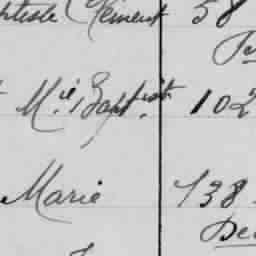 ptiste Clément 58
Mie Baptist. 102
Marie 738